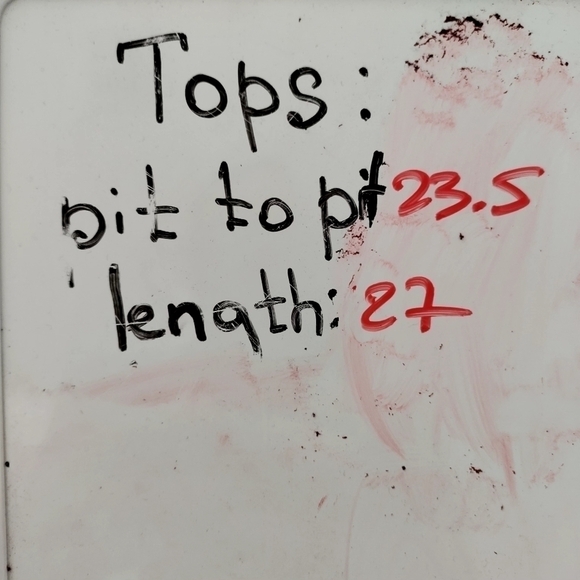 Tops:
pit to pit 23.5
length: 27